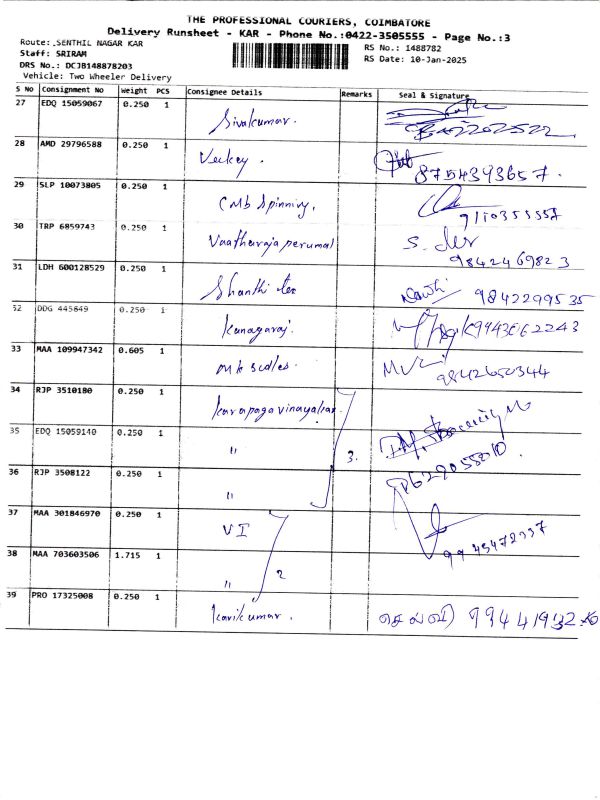 THE PROFESSIONAL COURIERS, COIMBATORE
Delivery Runsheet - KAR - Phone No.:0422-3505555 - Page No.:3
Route: SENTHIL NAGAR KAR
RS No.: 1488782
Staff: SRIRAM
RS Date: 10-Jan-2025
DRS No.: DCJB148878203
Vehicle: Two Wheeler Delivery
S No Consignment No Weight PCS Consignee Details Remarks Seal & Signature
27 EDQ 15059067 0.250 1 Sivakumar.
28 AMD 29796588 0.250 1 Veckey. 8754393657.
29 SLP 10073805 0.250 1 CMb Spinning, 9110355557
30 TRP 6859743 0.250 1 Vaatharaja perumal S. Dev 9842469823
31 LDH 600128529 0.250 1 Shanthi tex 9842299535
32 DDG 445849 0.250 1 Kanagaraj. 9943062243
33 MAA 109947342 0.605 1 9842650344
34 RJP 3510180 0.250 1 Karapagavinayakar
35 EDQ 15059140 0.250 1 " 3.
36 RJP 3508122 0.250 1 "
37 MAA 301846970 0.250 1 VI
38 MAA 703603506 1.715 1 " 2
39 PRO 17325008 0.250 1 Karikumar. செல்வி